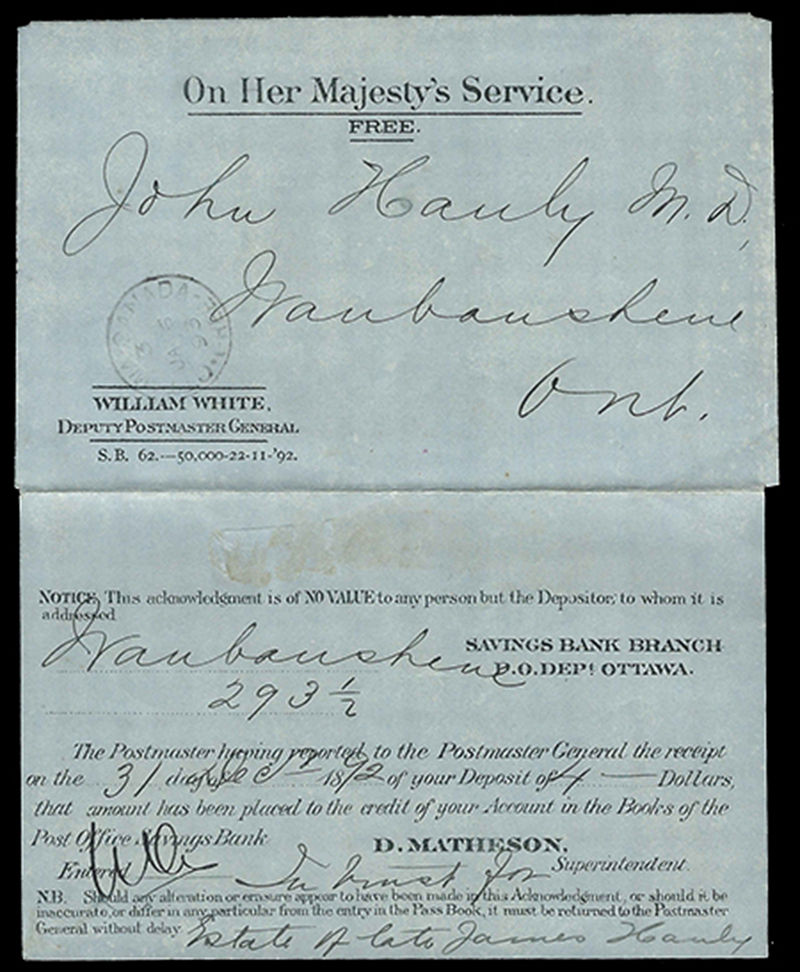 On Her Majesty's Service.
FREE.
John Hanly M.D.,
Waubaushene
Ont.
CANADA
5
JA
93
WILLIAM WHITE,
DEPUTY POSTMASTER GENERAL
S.B. 62.—50,000-22-11-'92.
NOTICE, This acknowledgment is of NO VALUE to any person but the Depositor, to whom it is
addressed
Waubaushene
SAVINGS BANK BRANCH
P.O. DEPT OTTAWA.
293 1/2
The Postmaster having reported to the Postmaster General the receipt
on the 31 day of Dec 1892 of your Deposit of 4 — Dollars,
that amount has been placed to the credit of your Account in the Books of the
Post Office Savings Bank
D. MATHESON.
Entered
Superintendent.
In trust for
N.B. Should any alteration or erasure appear to have been made in this Acknowledgment, or should it be
inaccurate, or differ in any particular from the entry in the Pass Book, it must be returned to the Postmaster
General without delay.
Estate of late James Hanly